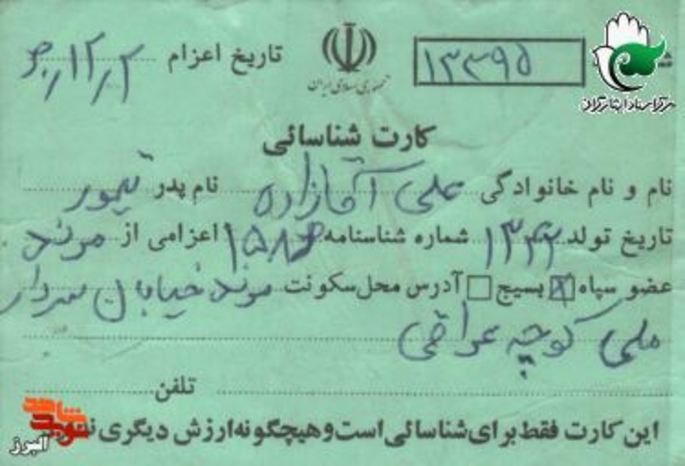 ۱۳۳۹۵
تاریخ اعزام
جمهوری اسلامی ایران
مرکز اسناد ایثارگران
کارت شناسائی
نام و نام خانوادگی علی آقازاده نام پدر تیمور
تاریخ تولد ۱۳۴۲ شماره شناسنامه اعزامی از مرند
عضو سپاه بسیج آدرس محل سکونت مرند خیابان سردار
ملی کوچه عراقی
تلفن
این کارت فقط برای شناسائی است و هیچگونه ارزش دیگری
شاهد
نوید
البرز